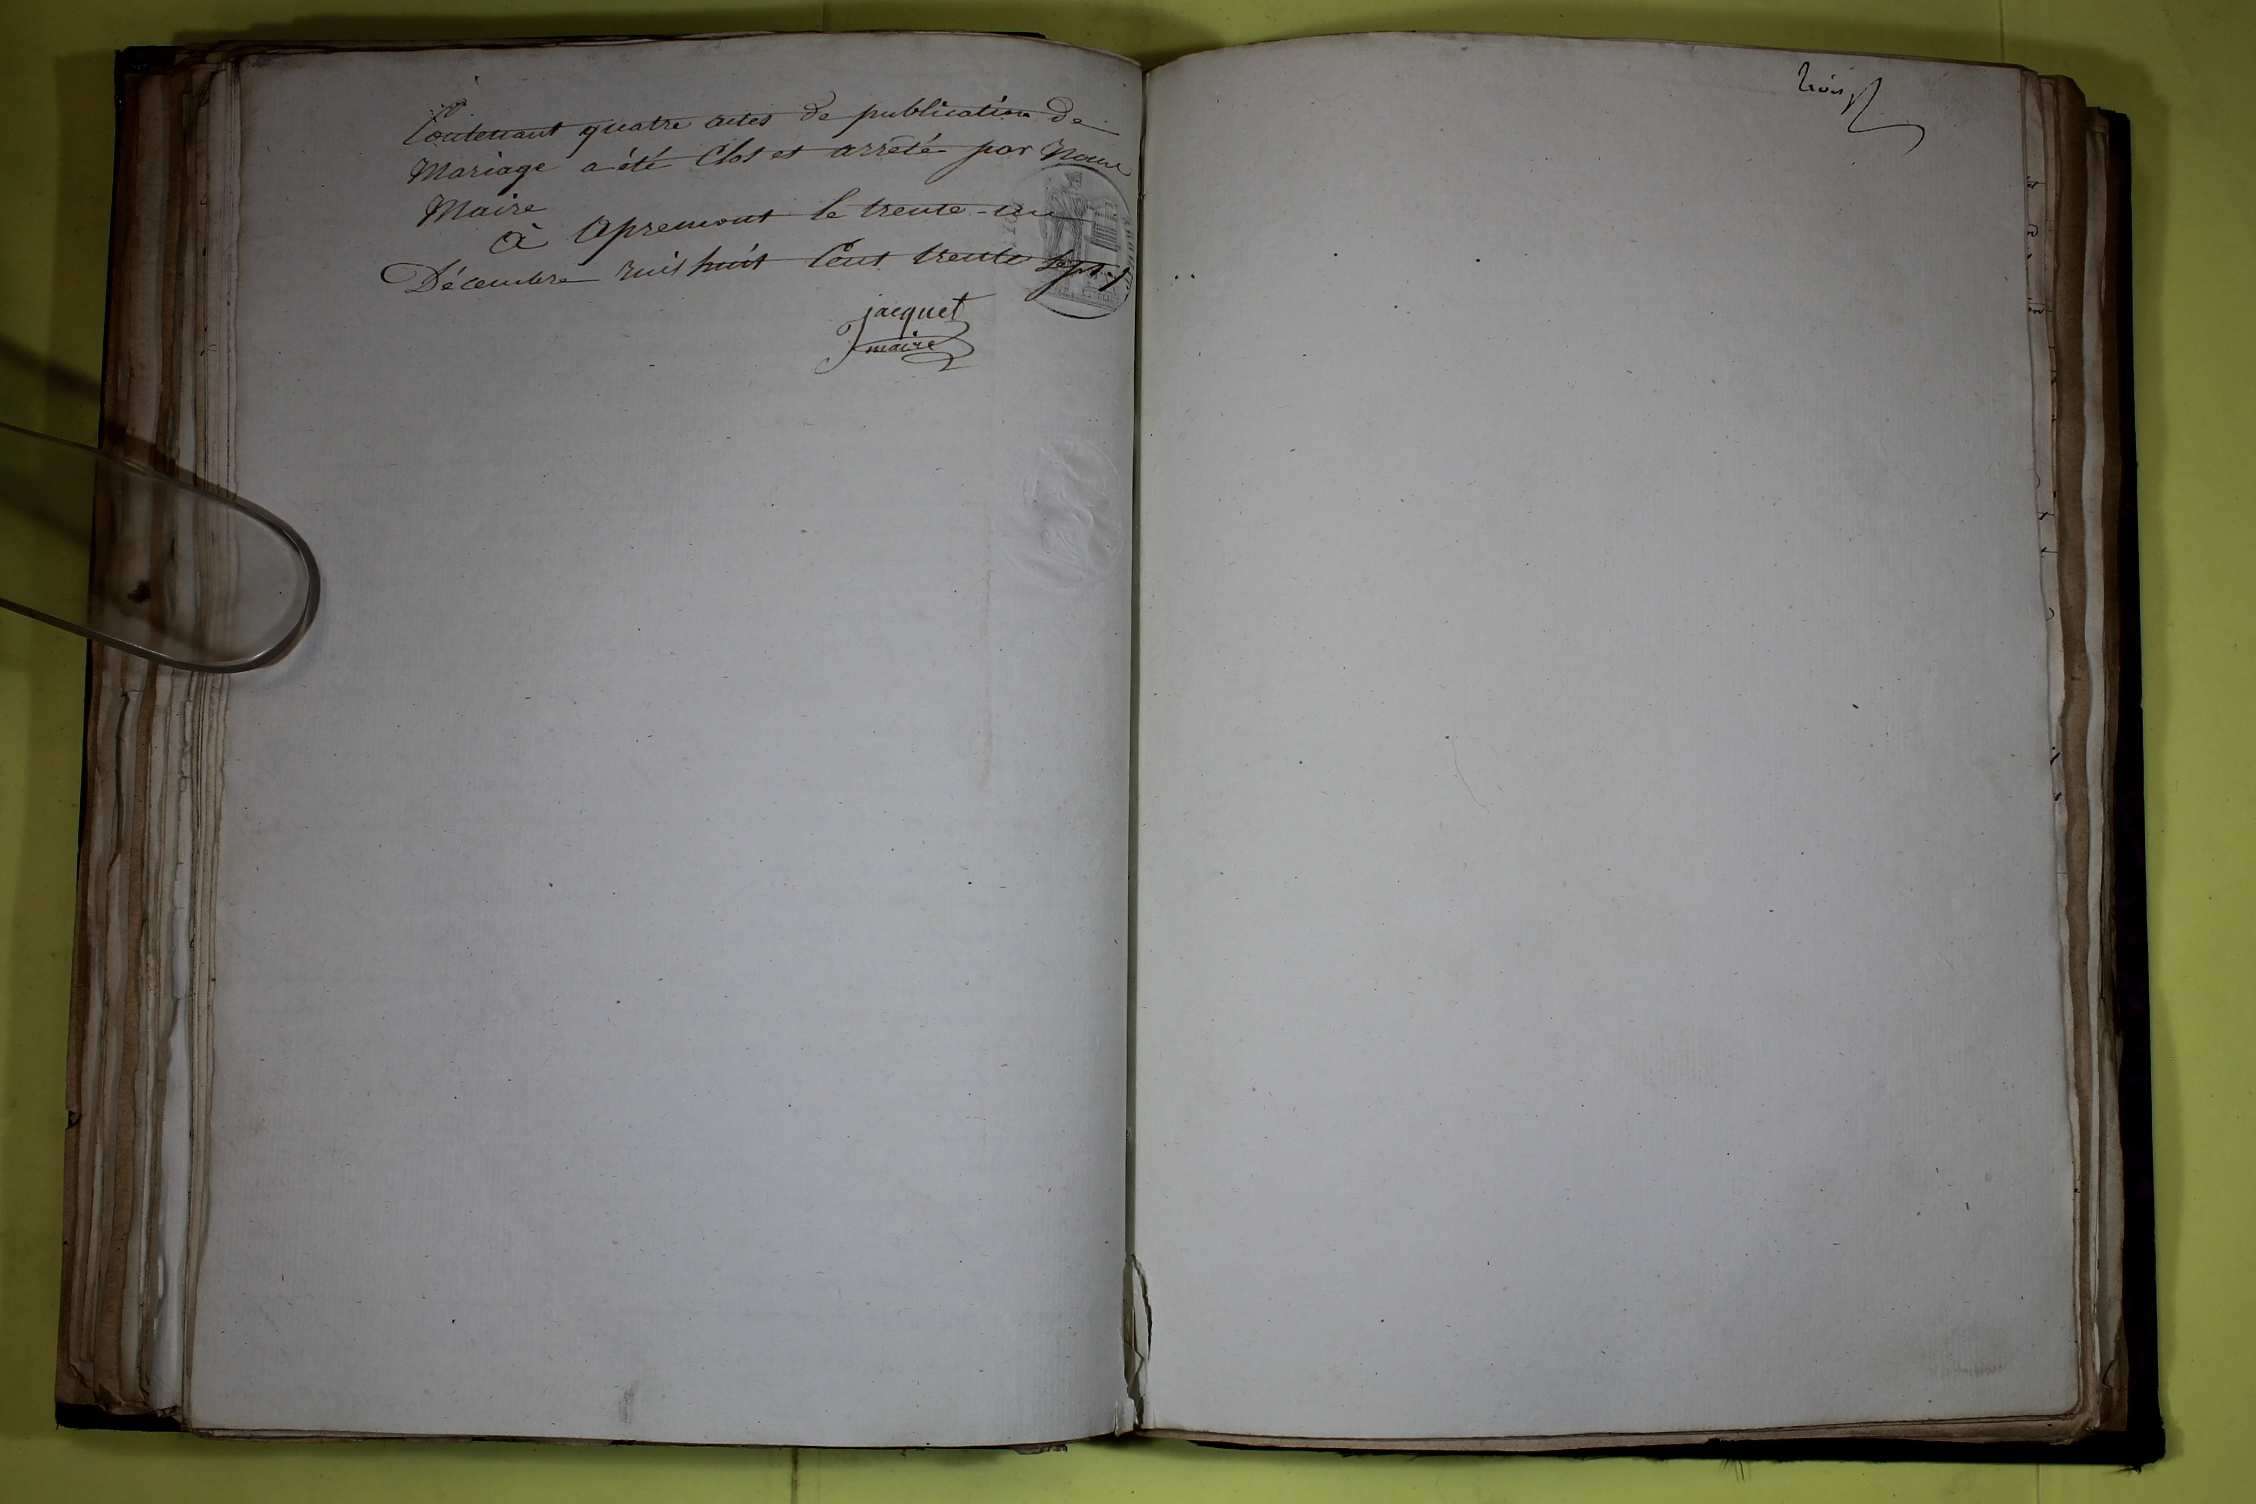 Contenant quatre actes de publication de
Mariage a été Clos et arreté par Nous
Maire
à Apremont le trente-un
Décembre mil huit Cent trente sept
jacquet
maire
trois